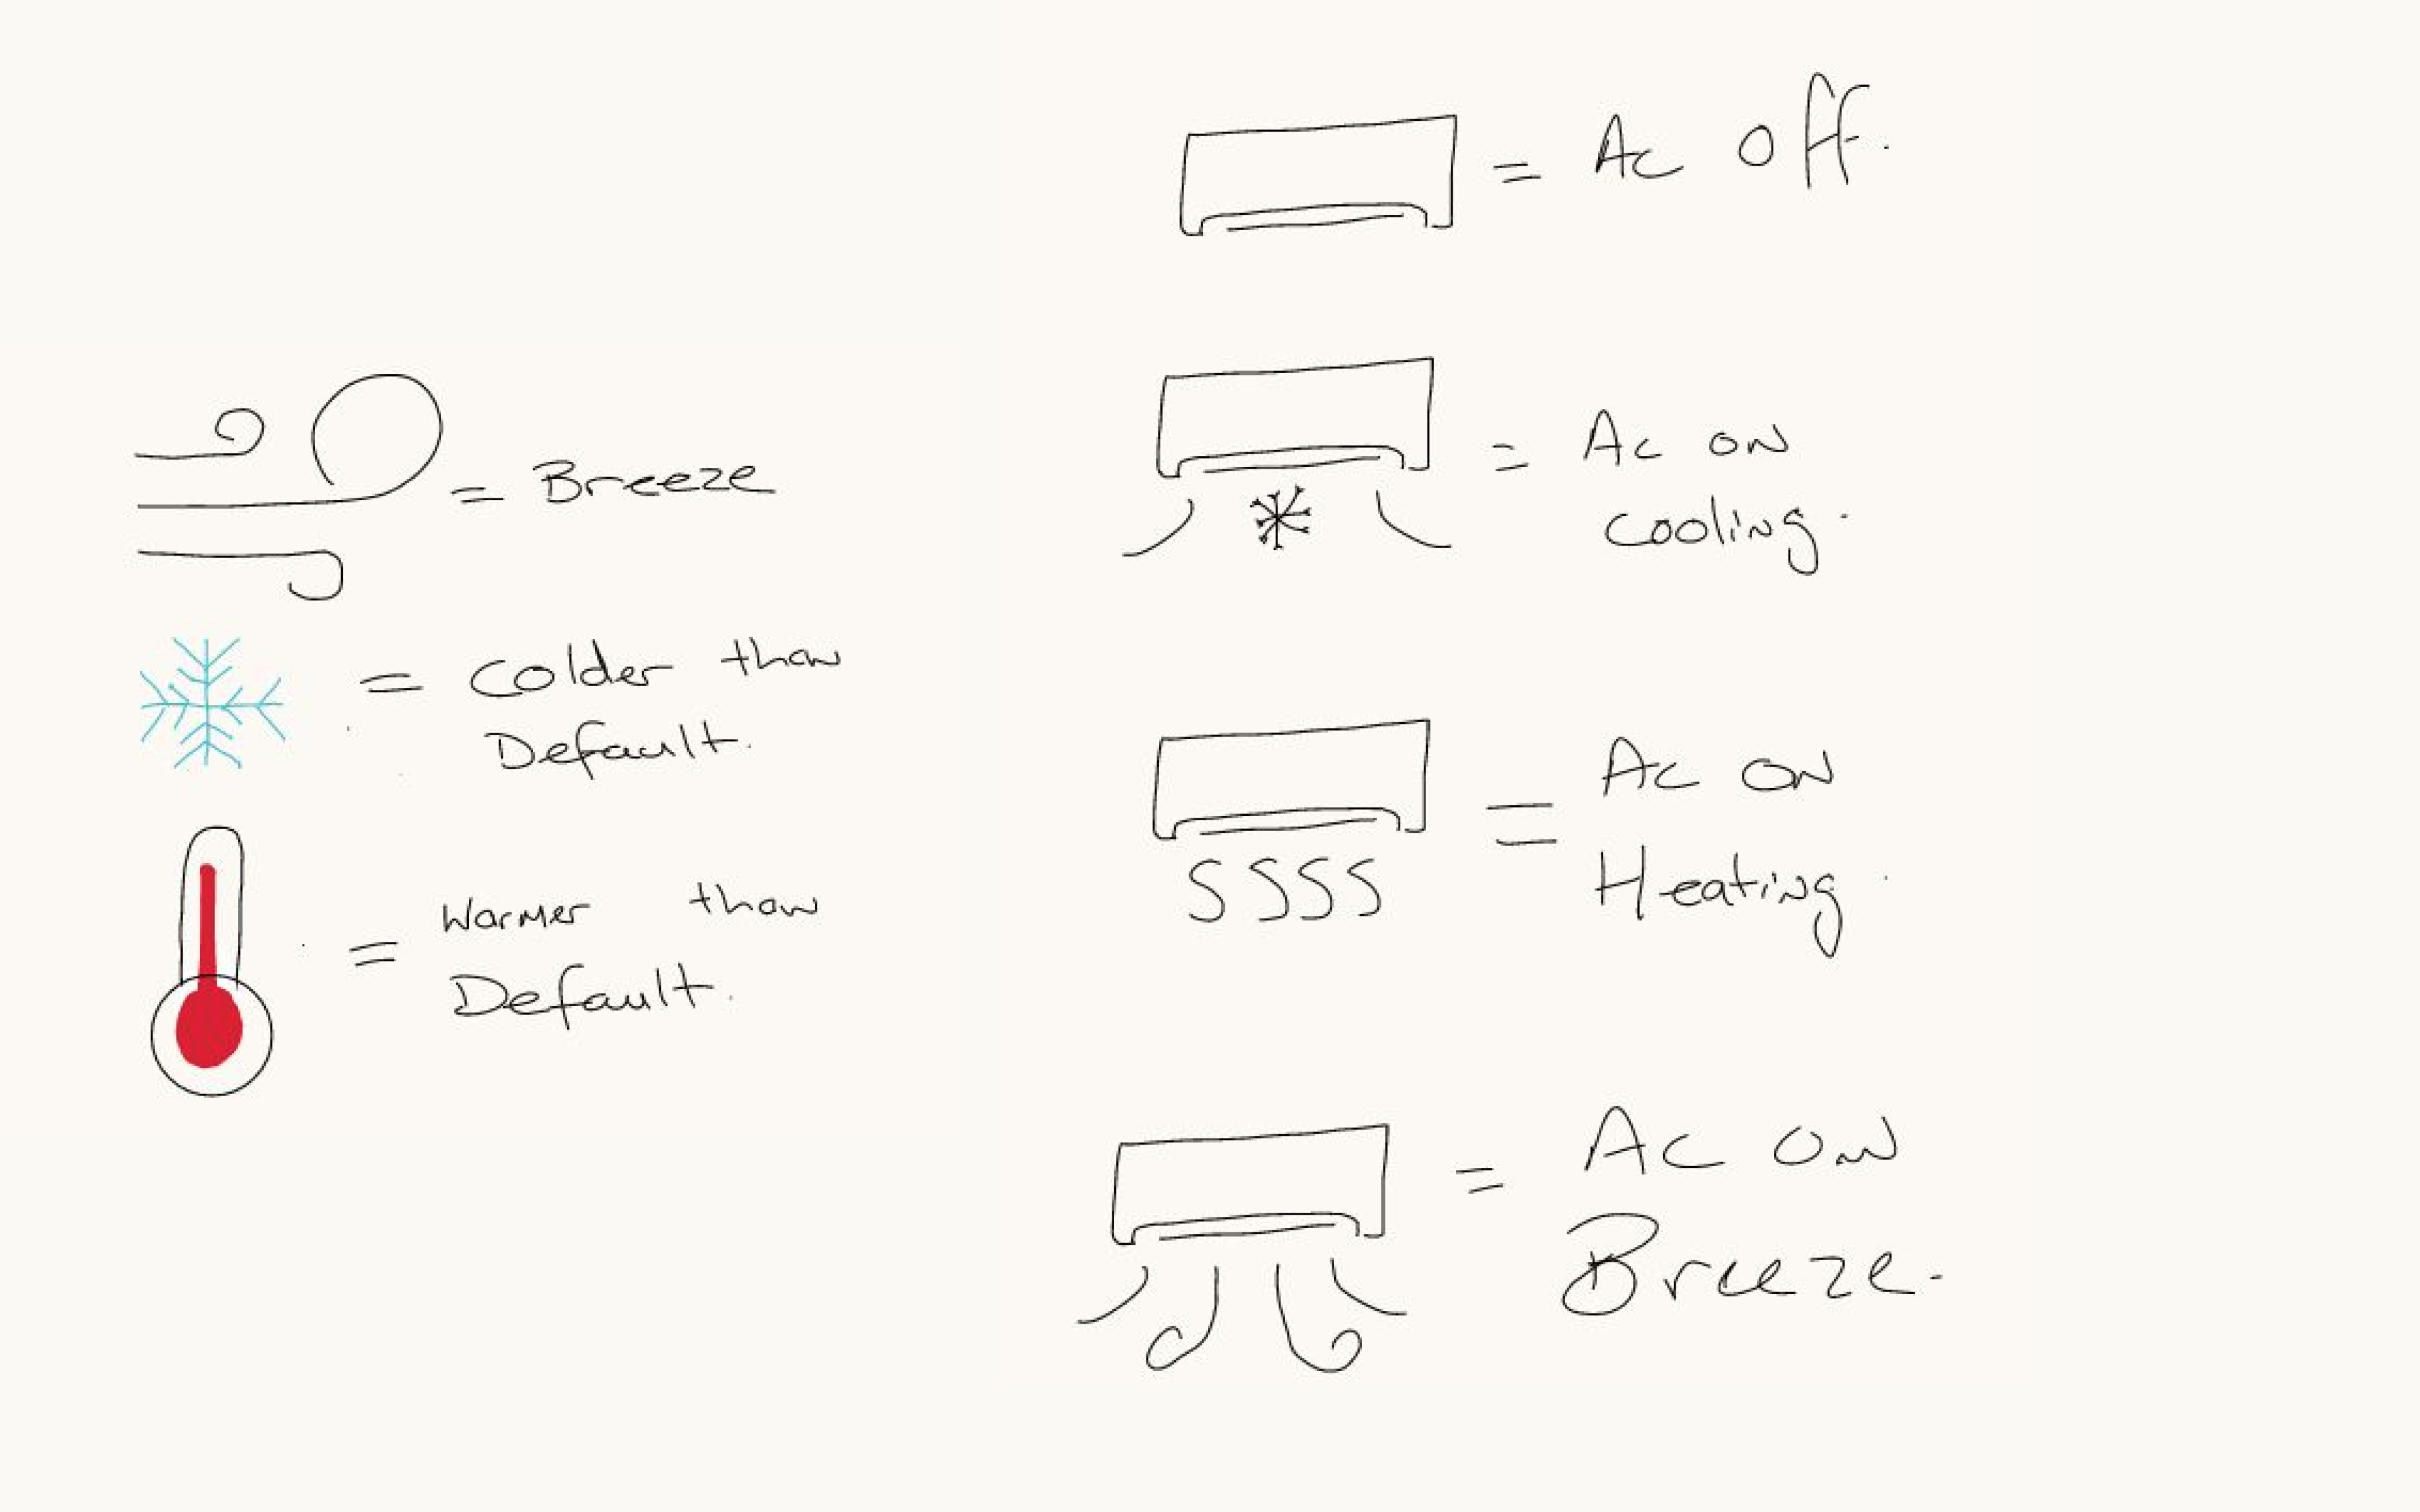 = Breeze
= Colder than
Default.
= Warmer than
Default.
= Ac off.
= Ac on
cooling.
= Ac on
Heating.
SSSS
= Ac on
Breeze.